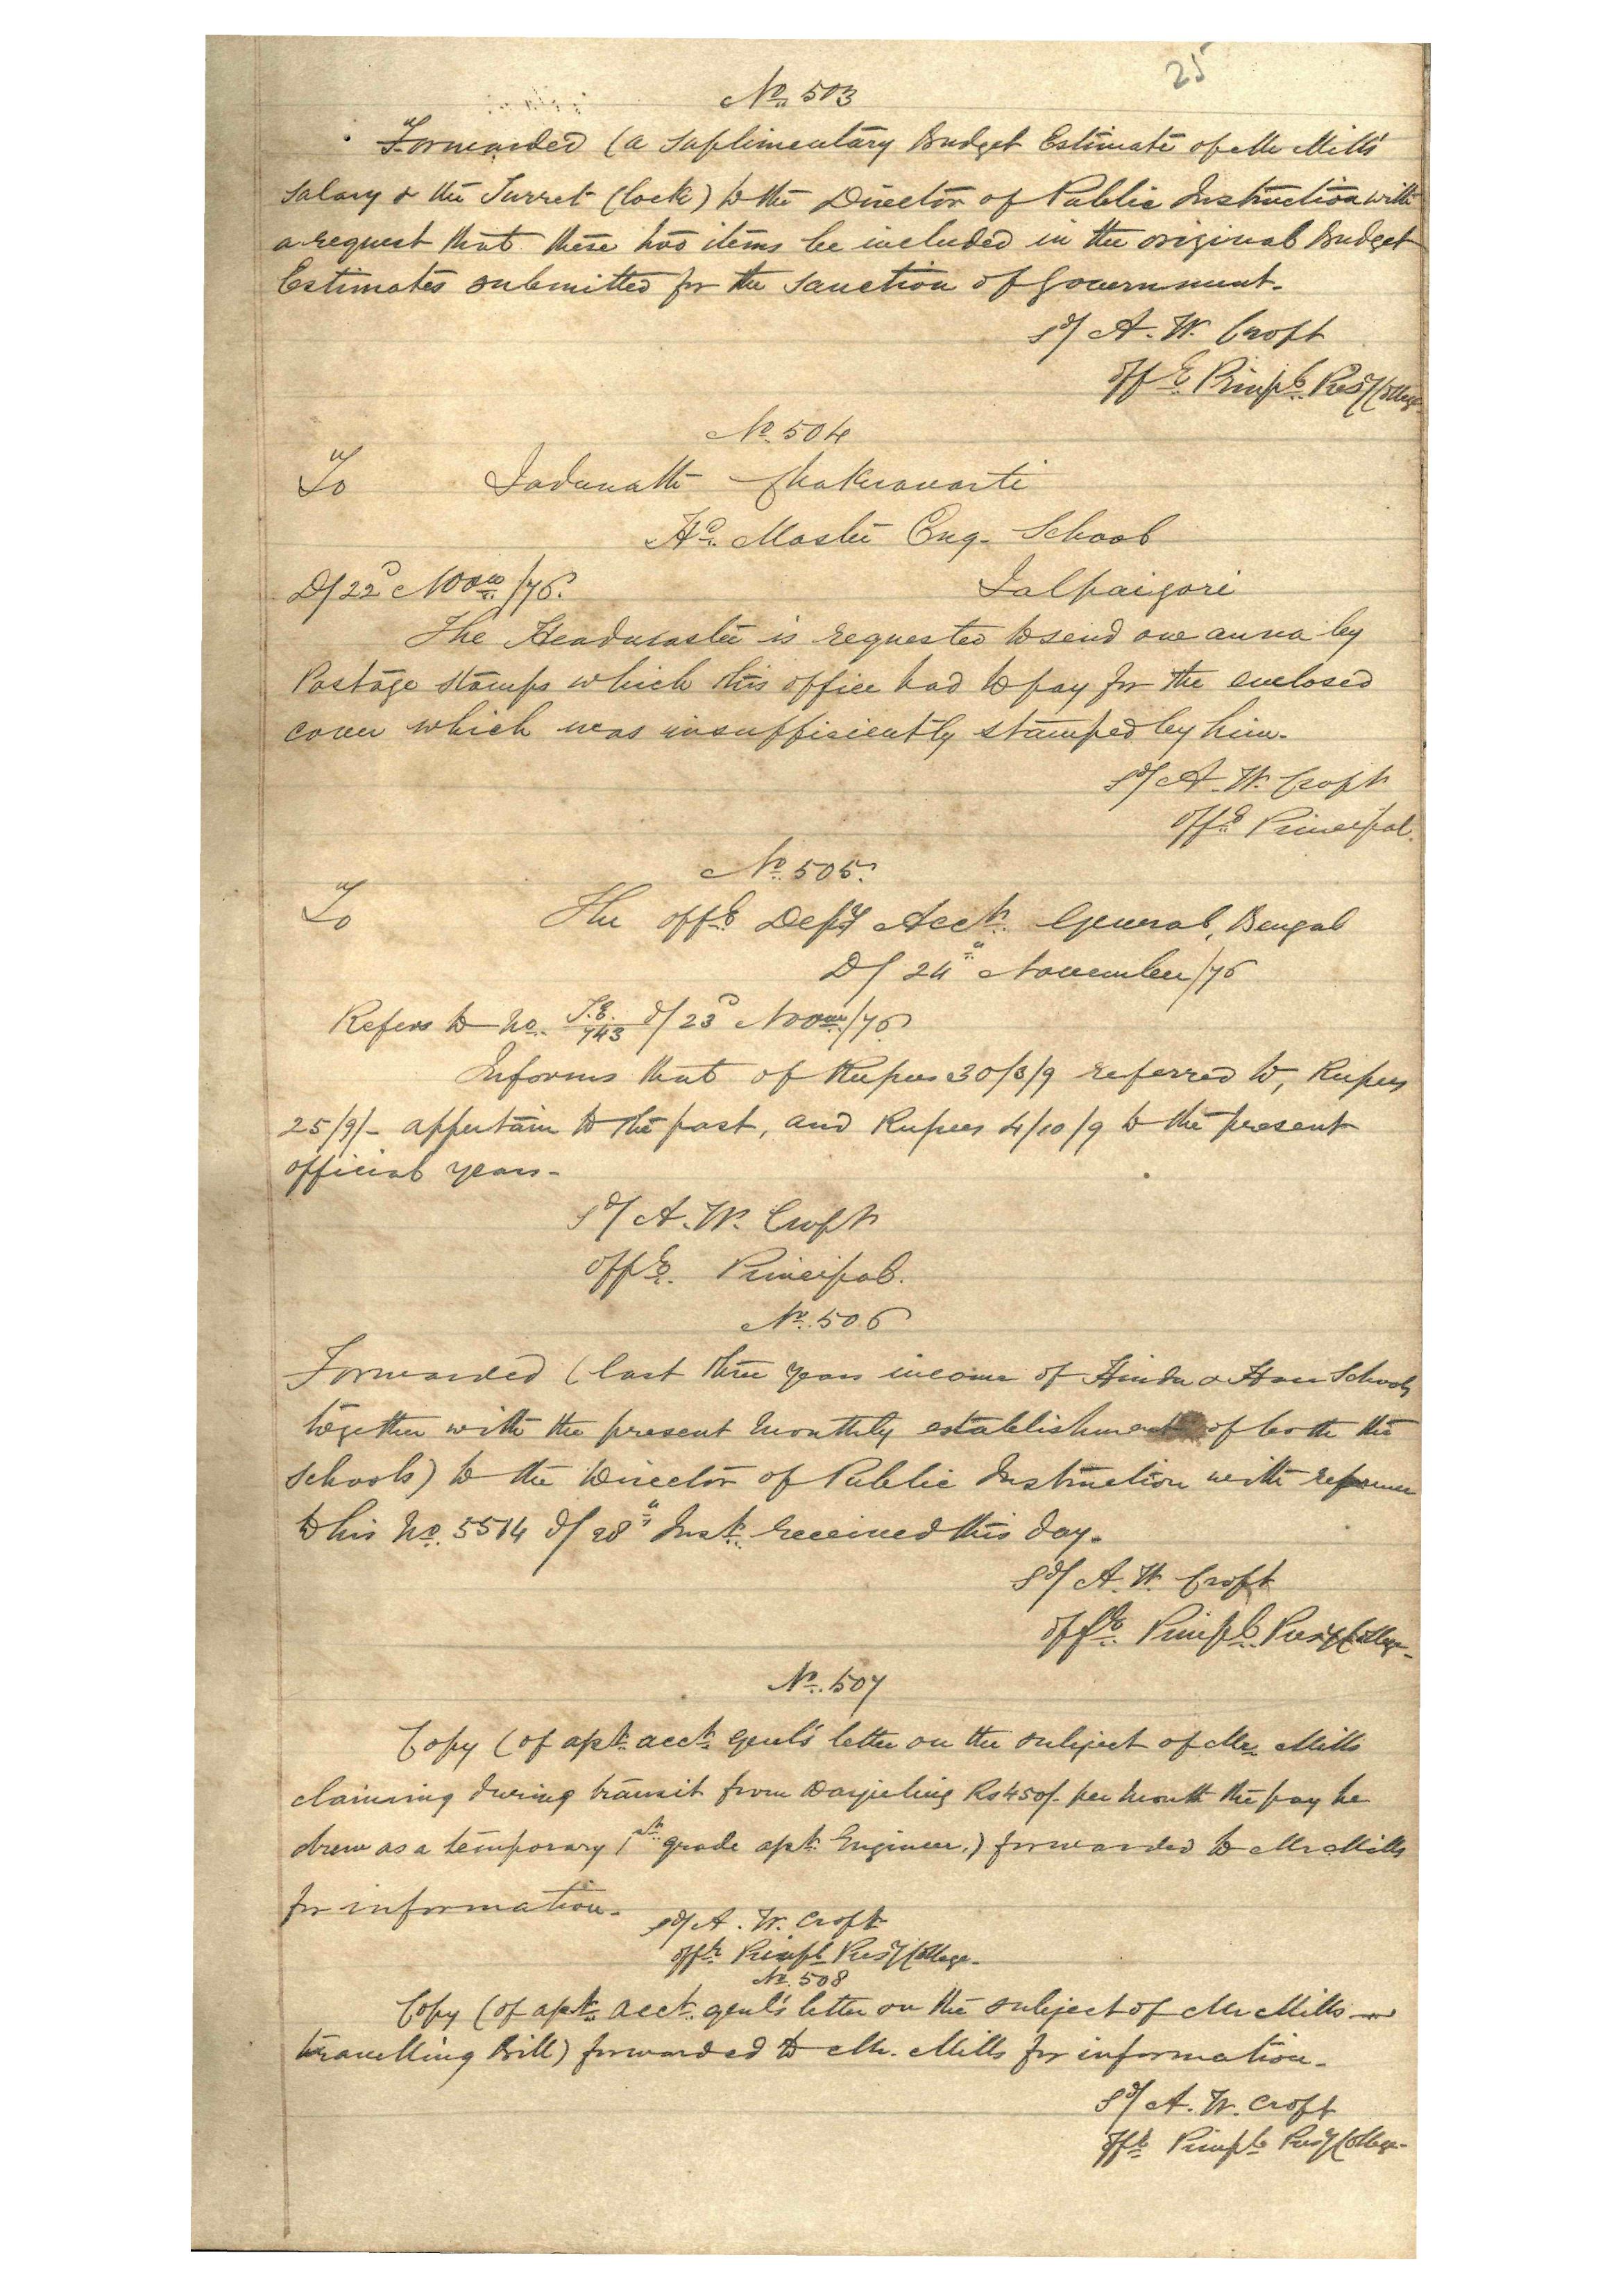 25
No. 503
Forwarded (a Suplimentary Budget Estimate of Mr Mills'
Salary & the Turret Clock) to the Director of Public Instruction with
a request that these two items be included in the original Budget
Estimates submitted for the sanction of Government.
Sd/ A. W. Croft
Offg. Principl. Presy College
No. 504
To Jadunath Chakravarti
Hd. Master Eng. School
D/ 22d Novem /76. Jalpaigori
The Headmaster is requested to send one anna by
Postage stamps which this office had to pay for the enclosed
cover which was insufficiently stamped by him.
Sd/ A. W. Croft
Offg Principal.
No. 505.
To The Offg Depy Acct. General, Bengal
D/ 24th November/76
Refers to No. T.E./743 d/ 23d Novem/76
Informs that of Rupees 30/3/9 referred to, Rupees
25/9/- appertain to the past, and Rupees 4/10/9 to the present
official years.
Sd/ A. W. Croft
Offg. Principal.
No. 506
Forwarded (last three years income of Hindu & Hare Schools
together with the present monthly establishment of both the
Schools) to the Director of Public Instruction with reference
to his No. 5514 d/ 28th Inst. received this day.
Sd/ A. W. Croft
Offg. Principl. Presy College.
No. 507
Copy (of apt. acct. genl's letter on the subject of Mr. Mills
claiming during transit from Darjeeling Rs 450/- per month the pay he
drew as a temporary 1st grade apt. Engineer.) forwarded to Mr Mills
for information.
Sd/ A. W. Croft
Offg Principl Presy College.
No. 508
Copy (of apt. acct. genl's letter on the subject of Mr Mills
travelling Bill) forwarded to Mr. Mills for information.
Sd/ A. W. Croft
Offg Principl Presy College.